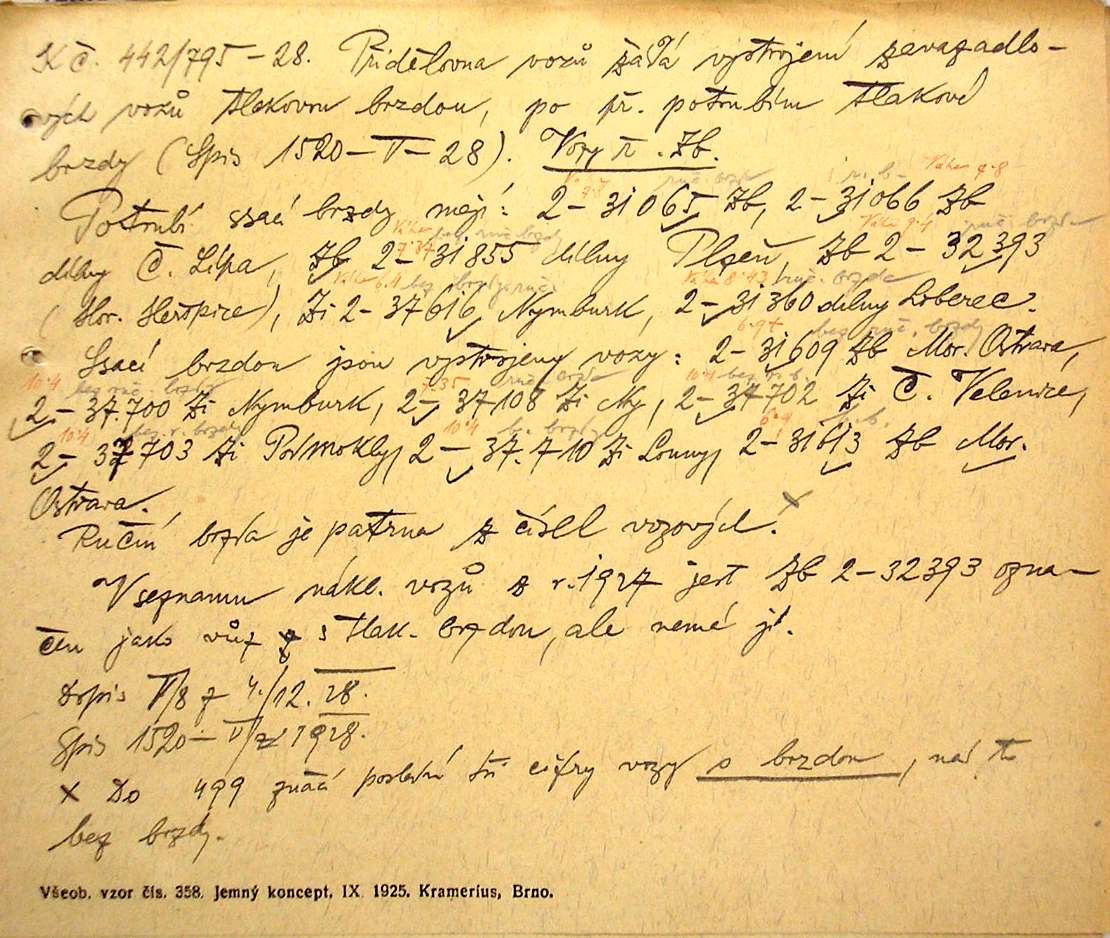 K č. 442/795 – 28. Přidělovna vozů žádá vystrojení zavazadlo-
vých vozů tlakovou brzdou, po př. potrubím tlakové
brzdy (Spis 1520 – V – 28). Vozy ř. Zb.
Potrubí ssací brzdy mají: 2 – 31065 Zb, 2 – 31066 Zb
dílny Č. Lípa, Zb 2 – 31855 dílny Plzeň, Zb 2 – 32393
(Hor. Heršpice), Zi 2 – 37616 Nymburk, 2 – 31360 dílny Liberec.
Ssací brzdou jsou vystrojeny vozy: 2 – 31609 Zb Mor. Ostrava,
2 – 37.700 Zi Nymburk, 2 – 37108 Zi Ny, 2 – 37702 Zi Č. Velenice,
2 – 37703 Zi Podmokly, 2 – 37.710 Zi Louny, 2 – 31613 Zb Mor.
Ostrava.
Ruční brzda je patrna z čísel vozových. x
V seznamu nákl. vozů z r. 1927 jest Zb 2 – 32393 ozna-
čen jako vůz s tlak. brzdou, ale nemá ji.
Dopis V/8 z 4./12. 28.
Spis 1520 – V z 1928.
x Do 499 značí poslední tři cifry vozy s brzdou, nad to
bez brzdy.
Všeob. vzor čís. 358. Jemný koncept. IX. 1925. Kramerius, Brno.